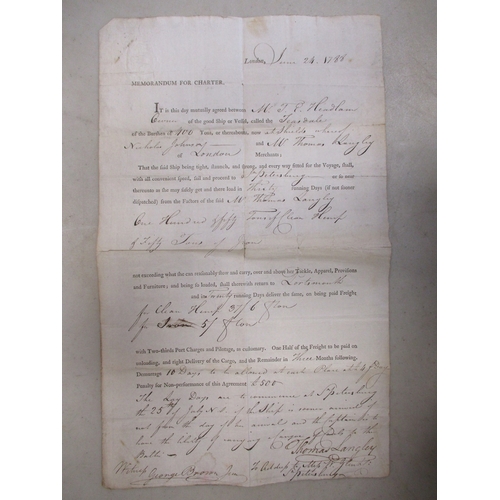 London, June 24, 1788
MEMORANDUM FOR CHARTER.
IT is this day mutually agreed between Mr T. E. Headlam
Owner of the good Ship or Vessel, called the Teasdale
of the Burthen of 400 Tons, or thereabouts, now at Shields whereof
Nicholas Johnson and Mr Thomas Langley
of London Merchants;
That the said Ship being tight, staunch, and strong, and every way fitted for the Voyage, shall,
with all convenient speed, sail and proceed to St Petersburg or so near
thereunto as she may safely get and there load in Thirty running Days (if not sooner
dispatched) from the Factors of the said Mr Thomas Langley
One Hundred & fifty Tons of Clean Hemp
& Fifty Tons of Iron
not exceeding what she can reasonably stow and carry, over and above her Tackle, Apparel, Provisions
and Furniture; and being so loaded, shall therewith return to Portsmouth
and in Twenty running Days deliver the same, on being paid Freight
for Clean Hemp 37/6 Ton
for Iron 5/ Ton
with Two-thirds Port Charges and Pilotage, as customary. One Half of the Freight to be paid on
unloading, and right Delivery of the Cargo, and the Remainder in Three Months following.
Demurrage 10 Days to be allowed at each Place at Day
Penalty for Non-performance of this Agreement £500
The Lay Days are to commence at St Petersburg
the 25 of July N.S. if the Ship is arrived
not from the day of her arrival and the Captain to
have the liberty of carrying Cargo of
Baltic
Thomas Langley
Witness George Brown
To Address to
St Petersburg